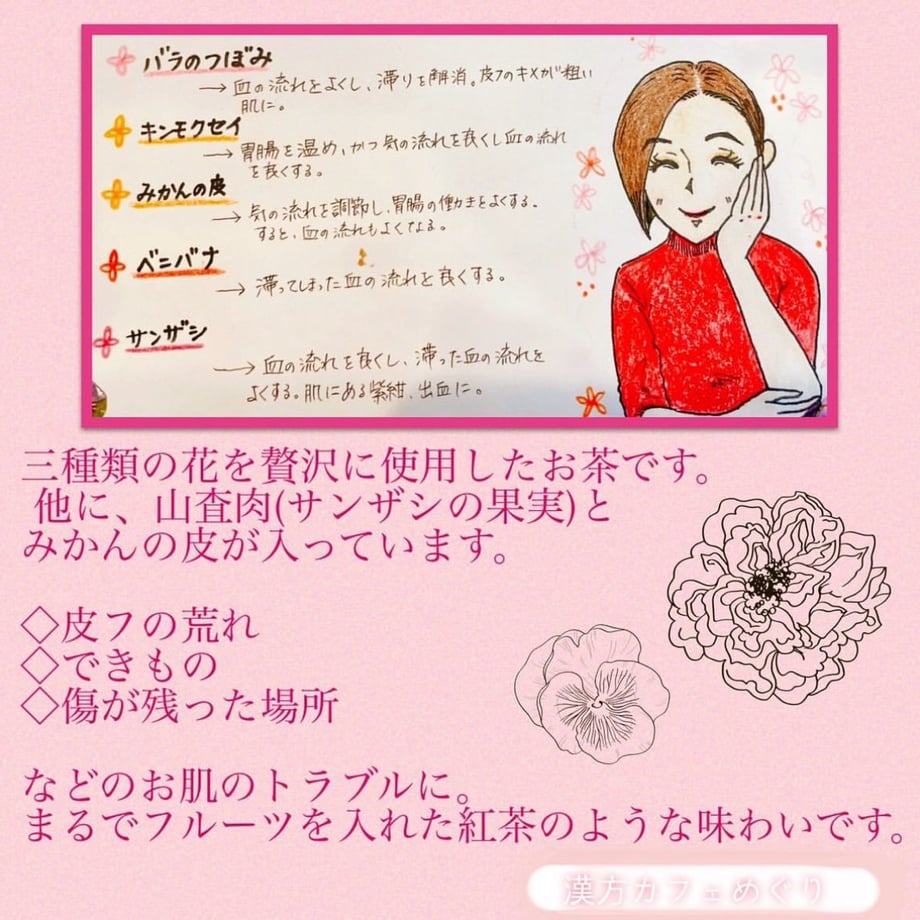 バラのつぼみ
→血の流れをよくし、滞りを解消。皮フのキメが粗い
肌に。
キンモクセイ
→胃腸を温め、かつ気の流れを良くし血の流れ
を良くする。
みかんの皮
→気の流れを調節し、胃腸の働きをよくする。
すると、血の流れもよくなる。
ベニバナ
→滞ってしまった血の流れを良くする。
サンザシ
→血の流れを良くし、滞った血の流れを
よくする。肌にある紫紺、出血に。
三種類の花を贅沢に使用したお茶です。
他に、山査肉(サンザシの果実)と
みかんの皮が入っています。
◇皮フの荒れ
◇できもの
◇傷が残った場所
などのお肌のトラブルに。
まるでフルーツを入れた紅茶のような味わいです。
漢方カフェめぐり